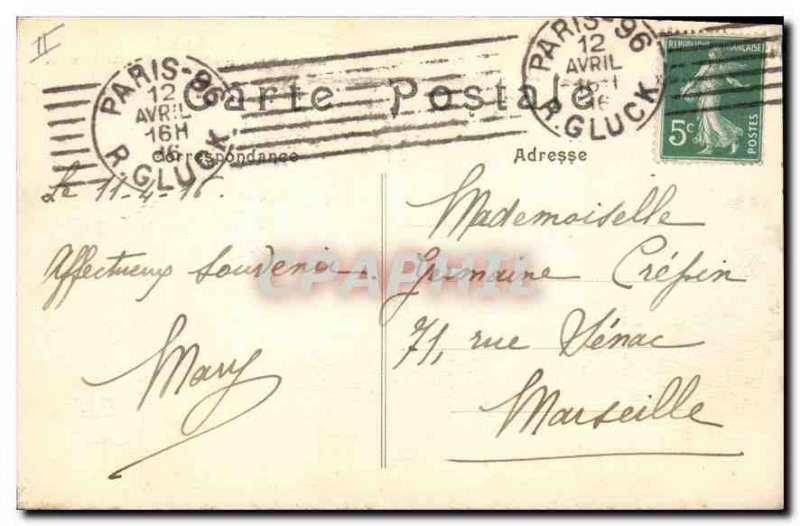 II
PARIS-96
12
AVRIL
16H
16
R. GLUCK
PARIS-96
12
AVRIL
16H
16
R. GLUCK
RÉPUBLIQUE FRANÇAISE
5c
POSTES
Carte Postale
Correspondance
Adresse
Le 11-4-16.
Affectueux Souvenir.
Mary
Mademoiselle
Germaine Crépin
71, rue Sénac
Marseille
CPAPHIL